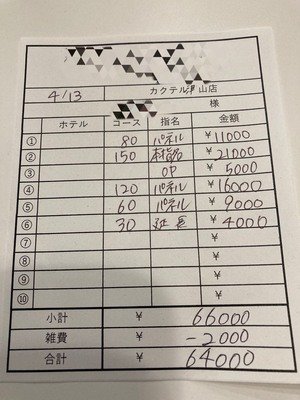 4/13 カクテル津山店
様
ホテル コース 指名 金額
① 80 パネル ¥11000
② 150 本指名 ¥21000
③ OP ¥5000
④ 120 パネル ¥16000
⑤ 60 パネル ¥9000
⑥ 30 延長 ¥4000
⑦ ¥
⑧ ¥
⑨ ¥
⑩ ¥
小計 ¥ 66000
雑費 ¥ -2000
合計 ¥ 64000